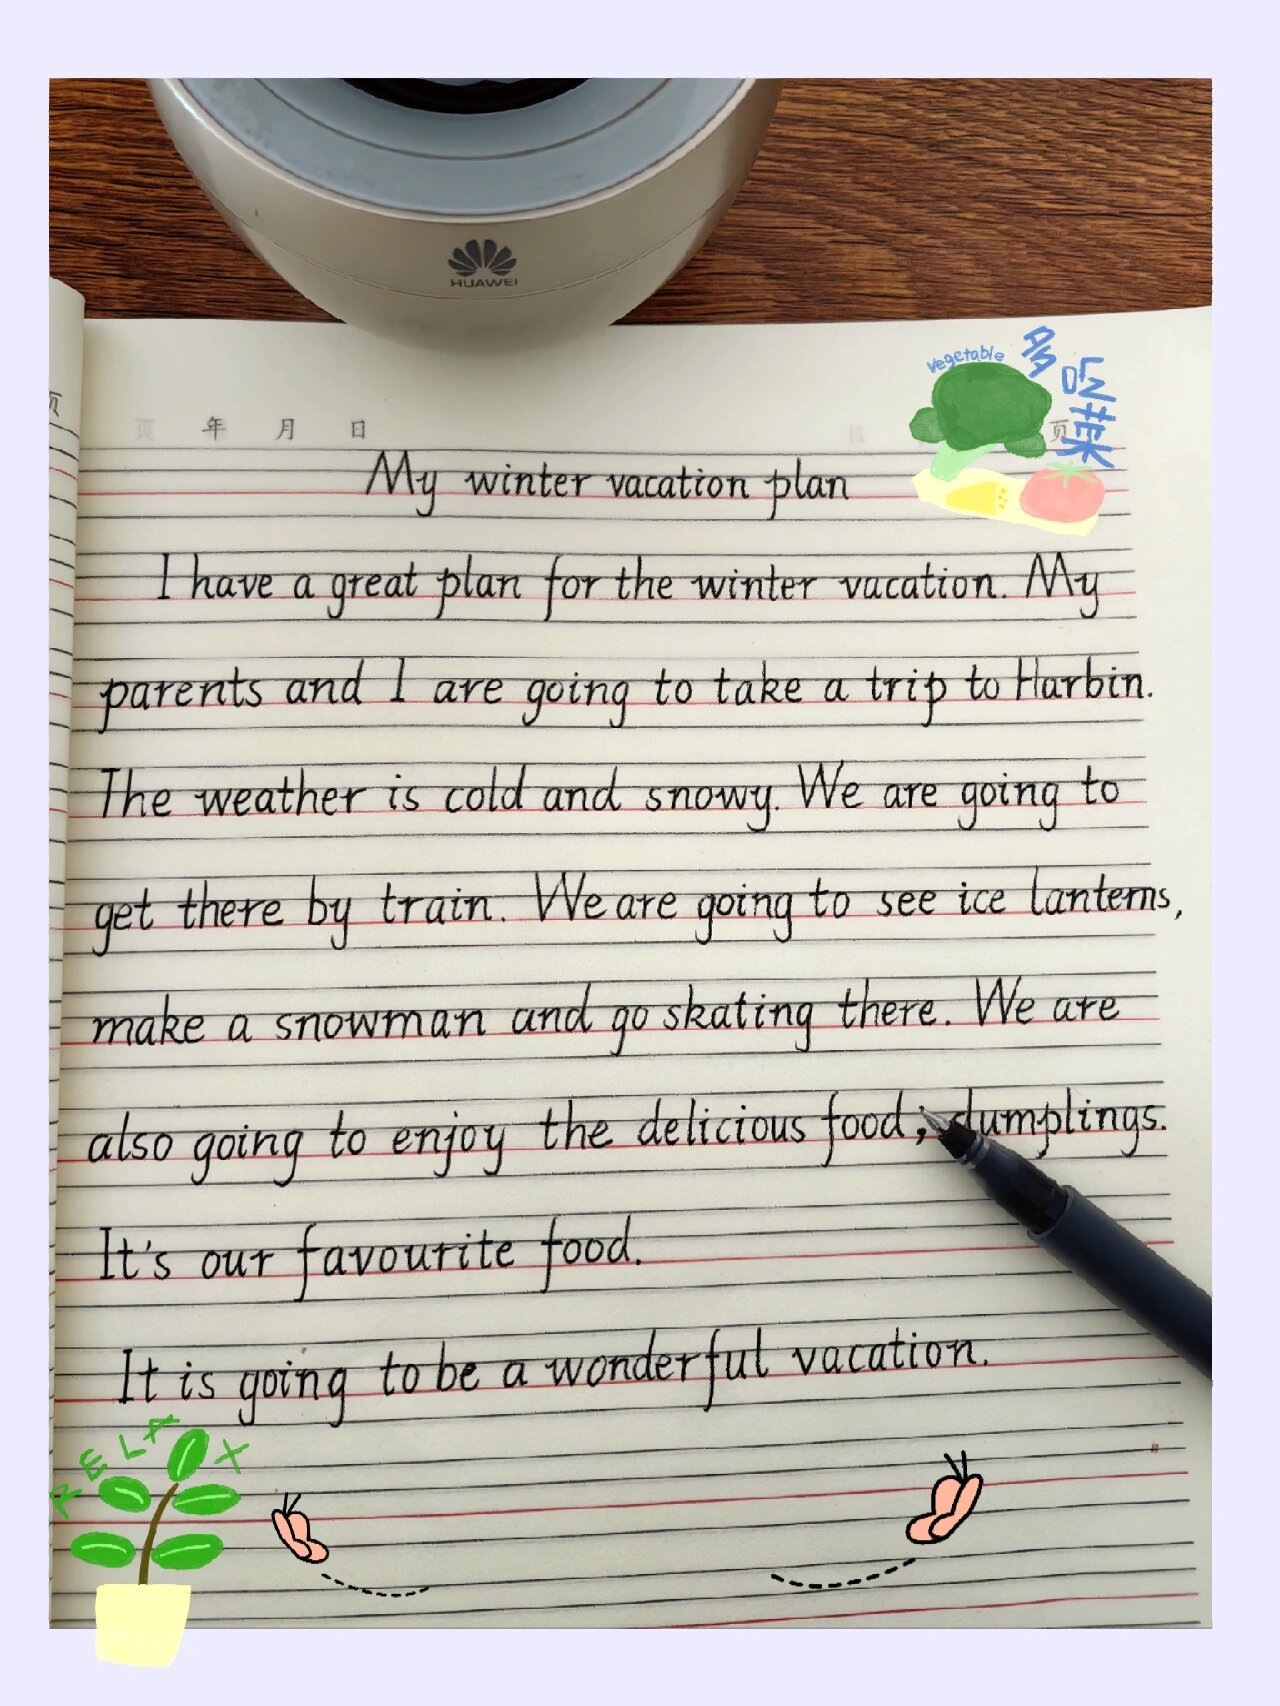 HUAWEI
vegetable
多吃菜
页
年 月 日
页
My winter vacation plan
I have a great plan for the winter vacation. My
parents and I are going to take a trip to Harbin.
The weather is cold and snowy. We are going to
get there by train. We are going to see ice lanterns,
make a snowman and go skating there. We are
also going to enjoy the delicious food; dumplings.
It's our favourite food.
It is going to be a wonderful vacation.
RELAX